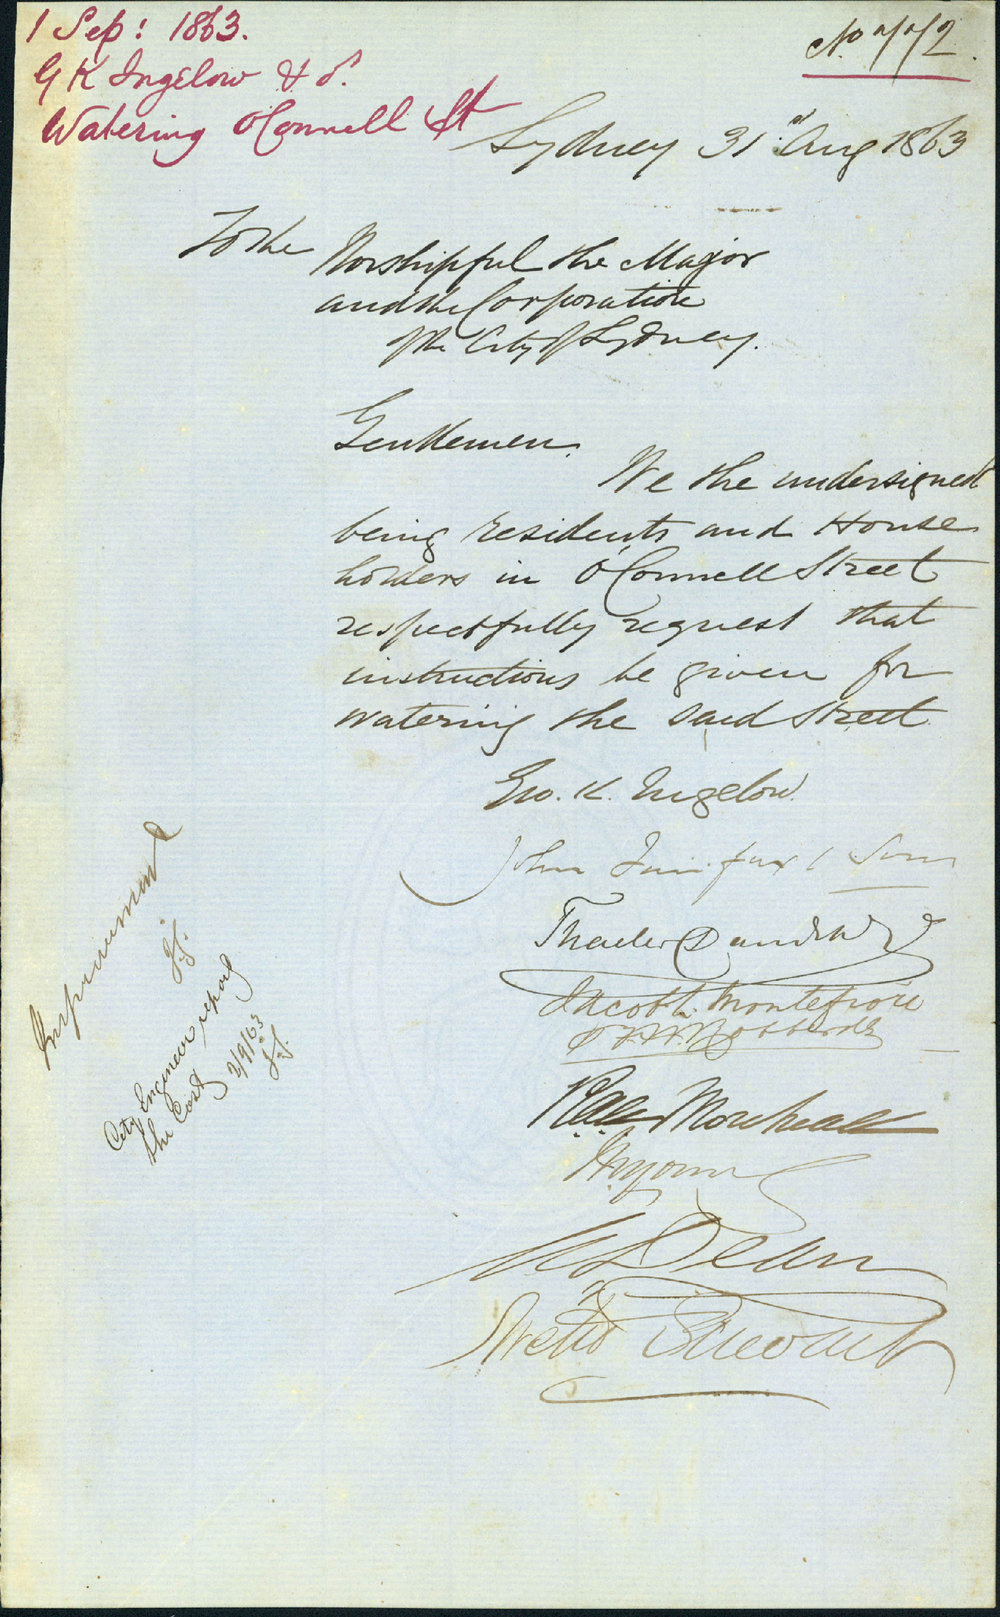 1 Sep: 1863.
G K Ingelow & o.
Watering O'Connell St
No. 772.
Sydney 31st Aug 1863
To the Worshipful the Mayor
and the Corporation
of the City of Sydney.
Gentlemen.
We the undersigned
being residents and House
holders in O'Connell Street
respectfully request that
instructions be given for
watering the said street
Geo. K. Ingelow.
John Fairfax & Sons
Jacob L. Montefiore
Dean
Stewart
City Engineer report
the Cost 2/9/63